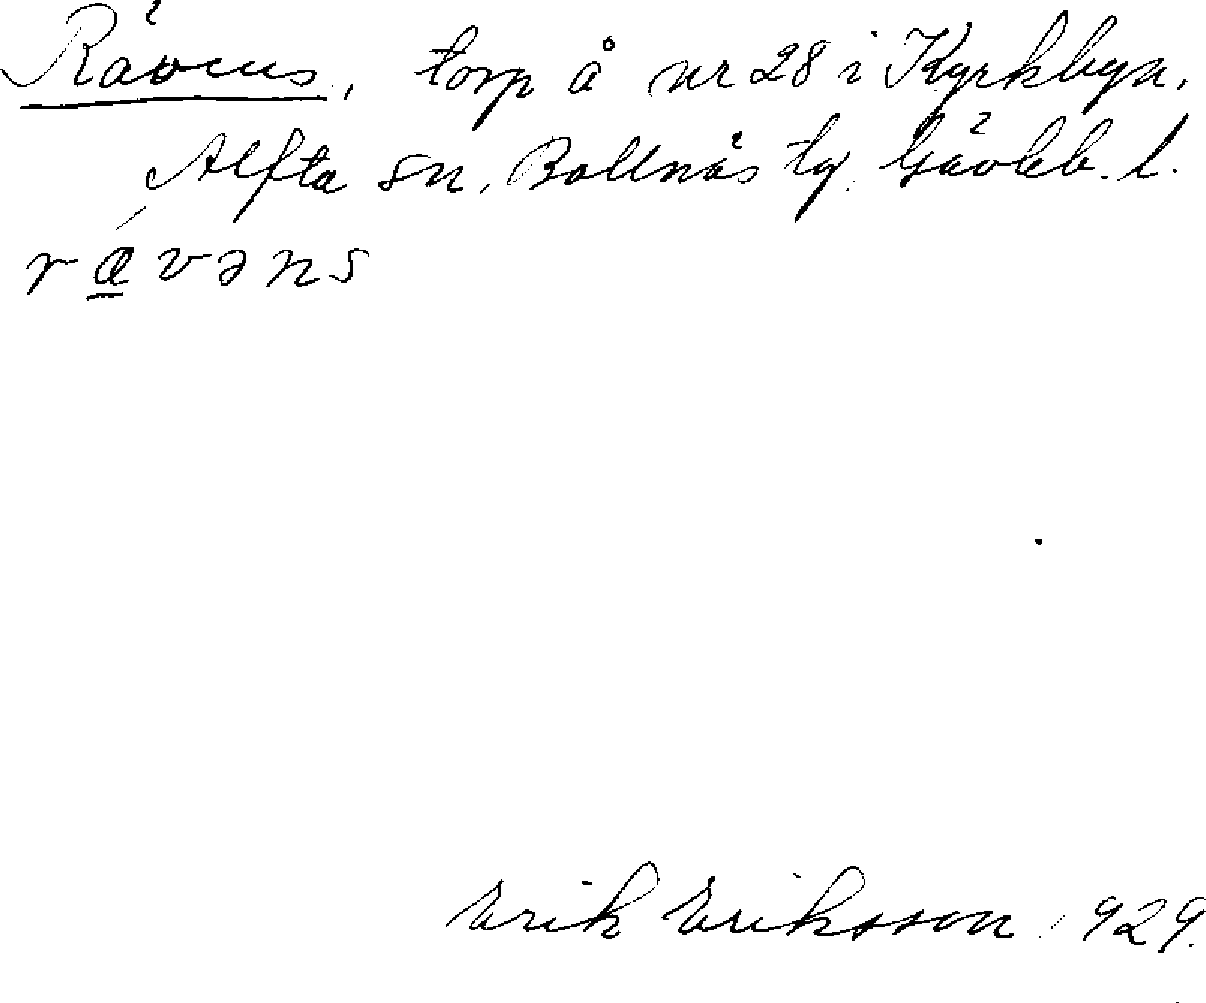 Rävens, torp å nr 28 i Kyrkbyn,
Alfta sn, Bollnäs tg. Gävleb. l.
rǽvəns
Erik Eriksson 1929.